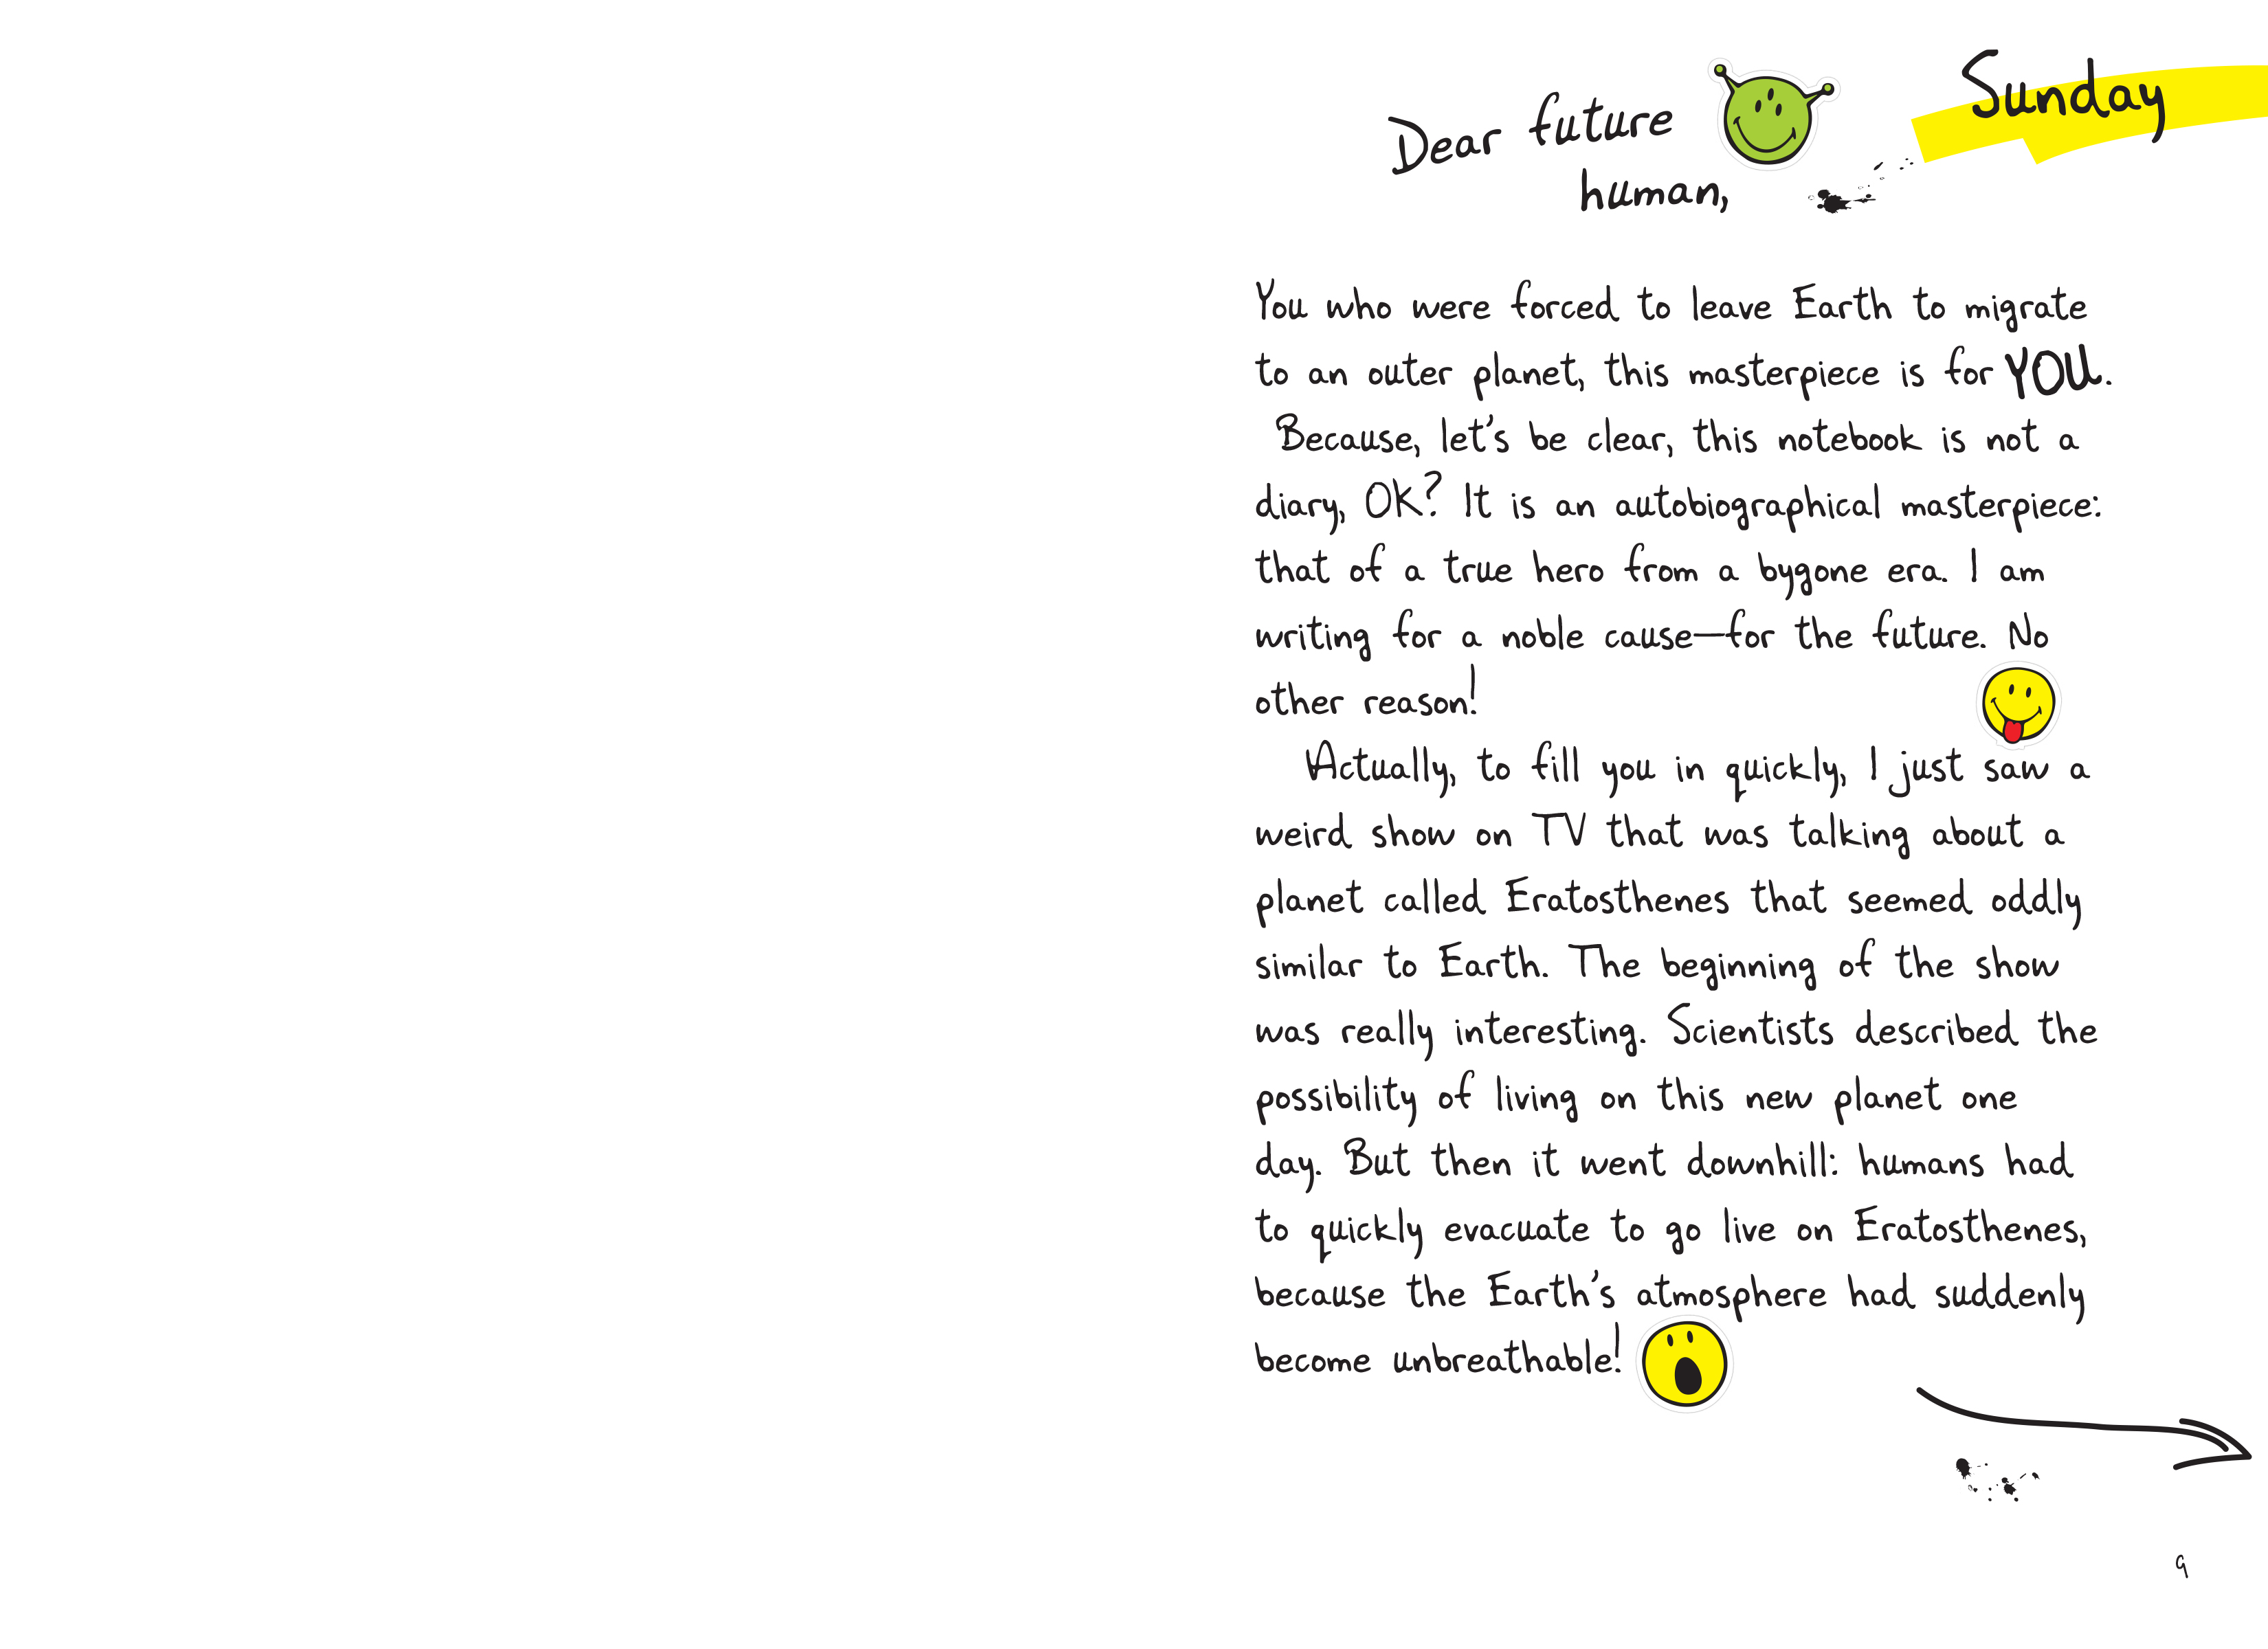 Sunday
Dear future
human,
You who were forced to leave Earth to migrate
to an outer planet, this masterpiece is for YOU.
Because, let's be clear, this notebook is not a
diary, OK? It is an autobiographical masterpiece:
that of a true hero from a bygone era. I am
writing for a noble cause—for the future. No
other reason!
Actually, to fill you in quickly, I just saw a
weird show on TV that was talking about a
planet called Eratosthenes that seemed oddly
similar to Earth. The beginning of the show
was really interesting. Scientists described the
possibility of living on this new planet one
day. But then it went downhill: humans had
to quickly evacuate to go live on Eratosthenes,
because the Earth's atmosphere had suddenly
become unbreathable!
9